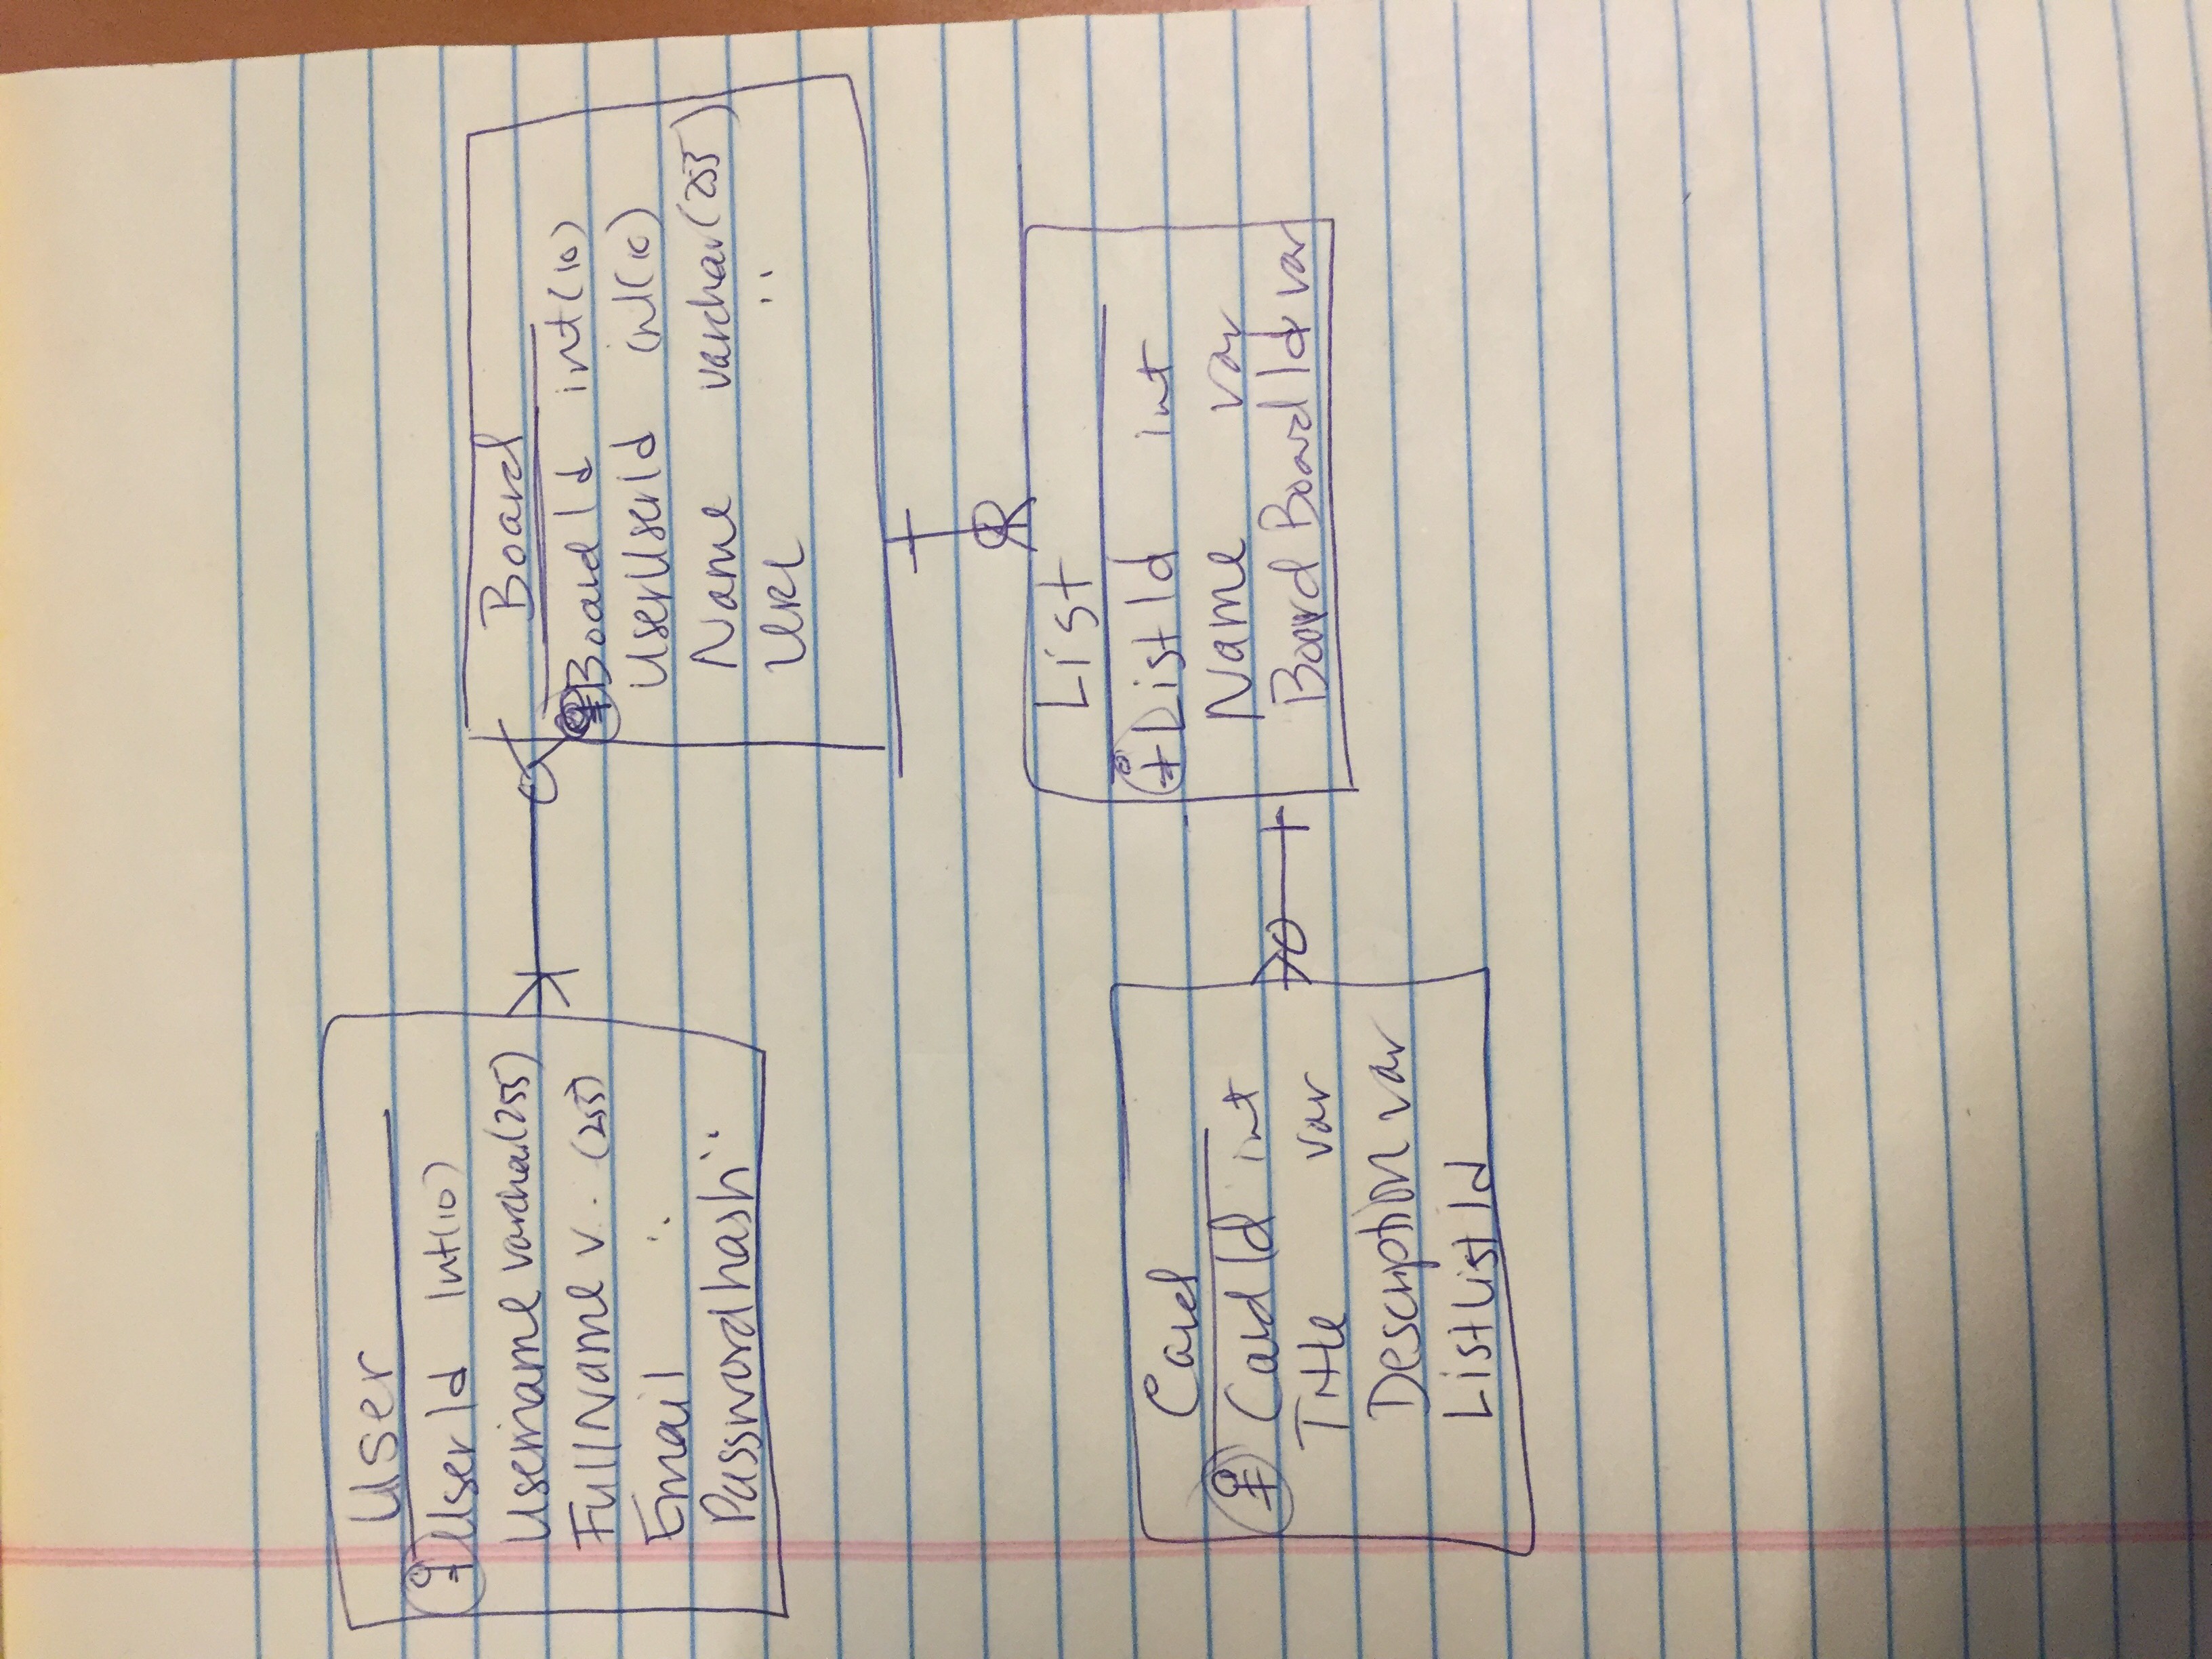 User
UserId Int(10)
Username varchar(255)
FullName v.. (255)
Email ..
Passwordhash ..
Board
BoardId int(10)
UserUserId int(10)
Name varchar(255)
URL ..
List
ListId int
Name var
BoardBoardId var
Card
CardId int
Title var
Description var
ListListId